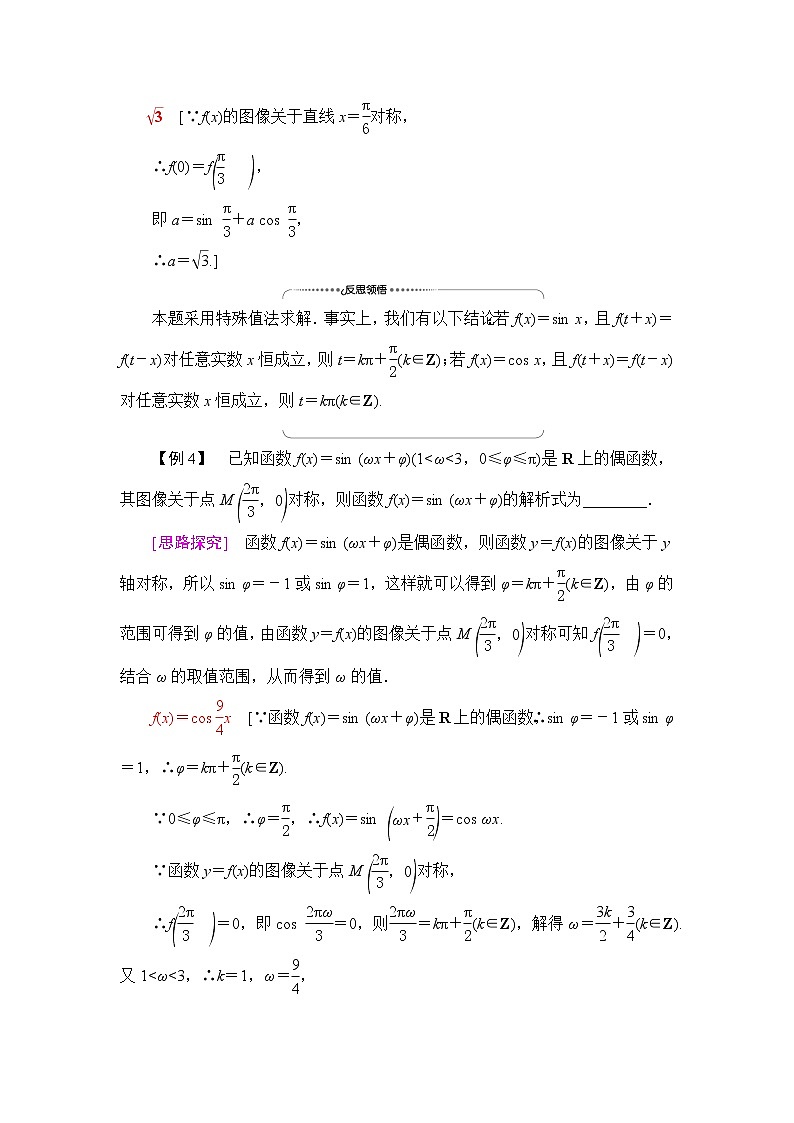 √3 [∵f(x)的图像关于直线 x＝π/6对称，
∴f(0)＝f(π/3)，
即 a＝sin π/3＋a cos π/3，
∴a＝√3.]
反思领悟
本题采用特殊值法求解．事实上，我们有以下结论若 f(x)＝sin x，且 f(t＋x)＝
f(t－x)对任意实数 x 恒成立，则 t＝kπ＋π/2(k∈Z)；若 f(x)＝cos x，且 f(t＋x)＝f(t－x)
对任意实数 x 恒成立，则 t＝kπ(k∈Z).
【例 4】 已知函数 f(x)＝sin (ωx＋φ)(1<ω<3，0≤φ≤π)是 R 上的偶函数，
其图像关于点 M(2π/3，0)对称，则函数 f(x)＝sin (ωx＋φ)的解析式为________．
[思路探究] 函数 f(x)＝sin (ωx＋φ)是偶函数，则函数 y＝f(x)的图像关于 y
轴对称，所以 sin φ＝－1 或 sin φ＝1，这样就可以得到 φ＝kπ＋π/2(k∈Z)，由 φ 的
范围可得到 φ 的值，由函数 y＝f(x)的图像关于点 M(2π/3，0)对称可知 f(2π/3)＝0，
结合 ω 的取值范围，从而得到 ω 的值．
f(x)＝cos 9/4x [∵函数 f(x)＝sin (ωx＋φ)是 R 上的偶函数∴sin φ＝－1 或 sin φ
＝1，∴φ＝kπ＋π/2(k∈Z).
∵0≤φ≤π，∴φ＝π/2，∴f(x)＝sin (ωx＋π/2)＝cos ωx.
∵函数 y＝f(x)的图像关于点 M(2π/3，0)对称，
∴f(2π/3)＝0，即 cos 2πω/3＝0，则2πω/3＝kπ＋π/2(k∈Z)，解得 ω＝3k/2＋3/4(k∈Z).
又 1<ω<3，∴k＝1，ω＝9/4，